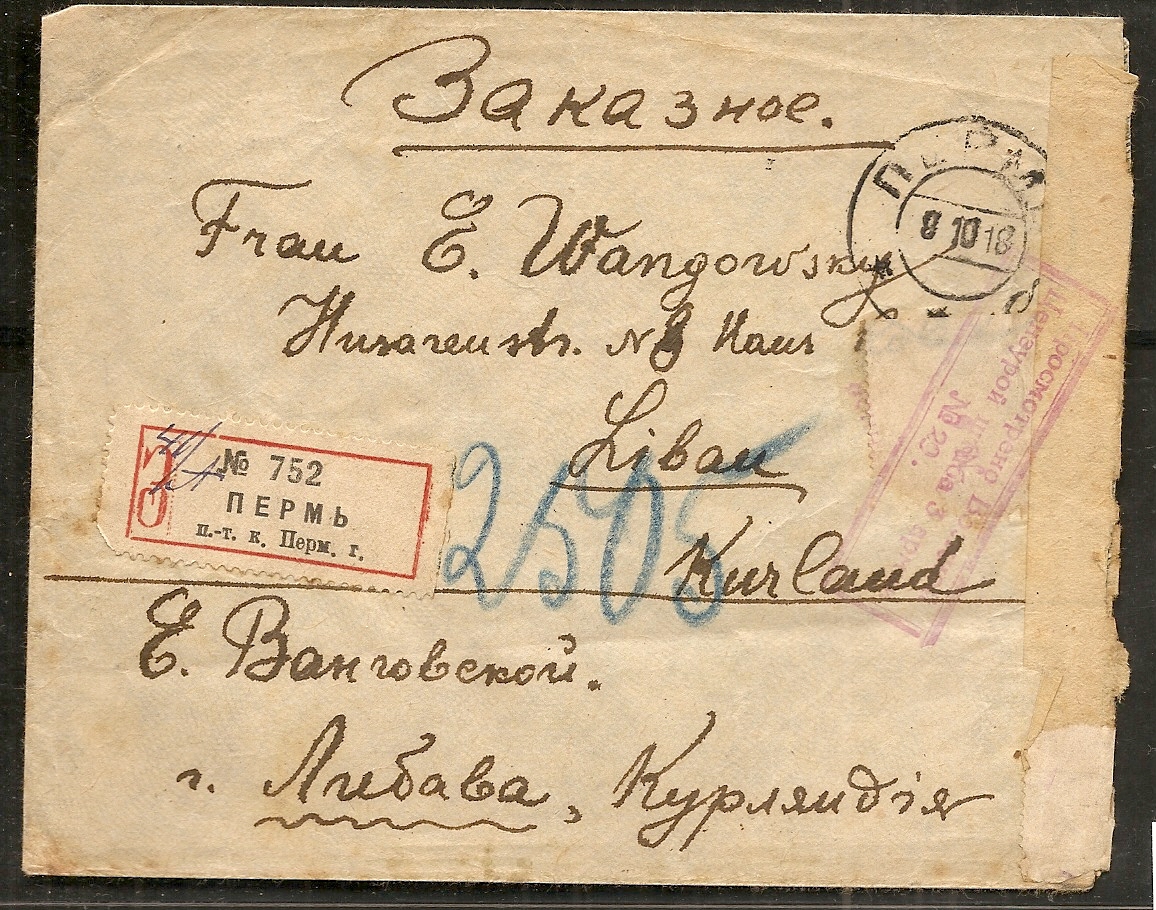 Заказное.
ПЕРМЬ
8 10 18
Frau E. Wangowsky
Husarenstr. № 8 Haus
Libau
Kurland
З
№ 752
ПЕРМЬ
п.-т. к. Перм. г.
2505
Просмотрено В
Цензурой
№ 29.
Е. Ванговской.
г. Либава, Курляндія